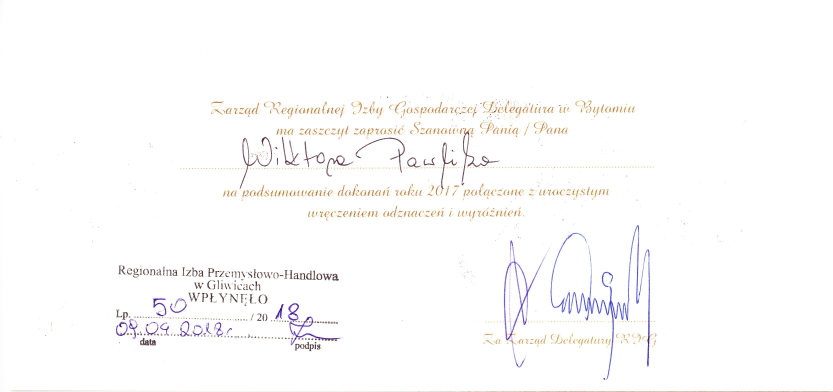 Zarząd Regionalnej Izby Gospodarczej Delegatura w Bytomiu
ma zaszczyt zaprosić Szanowną Panią / Pana
Wiktora Pawlika
na podsumowanie dokonań roku 2017 połączone z uroczystym
wręczeniem odznaczeń i wyróżnień.
Regionalna Izba Przemysłowo-Handlowa
w Gliwicach
WPŁYNĘŁO
Lp. 50 / 20 18
09.04.2018r.
data podpis
Za Zarząd Delegatury RIG